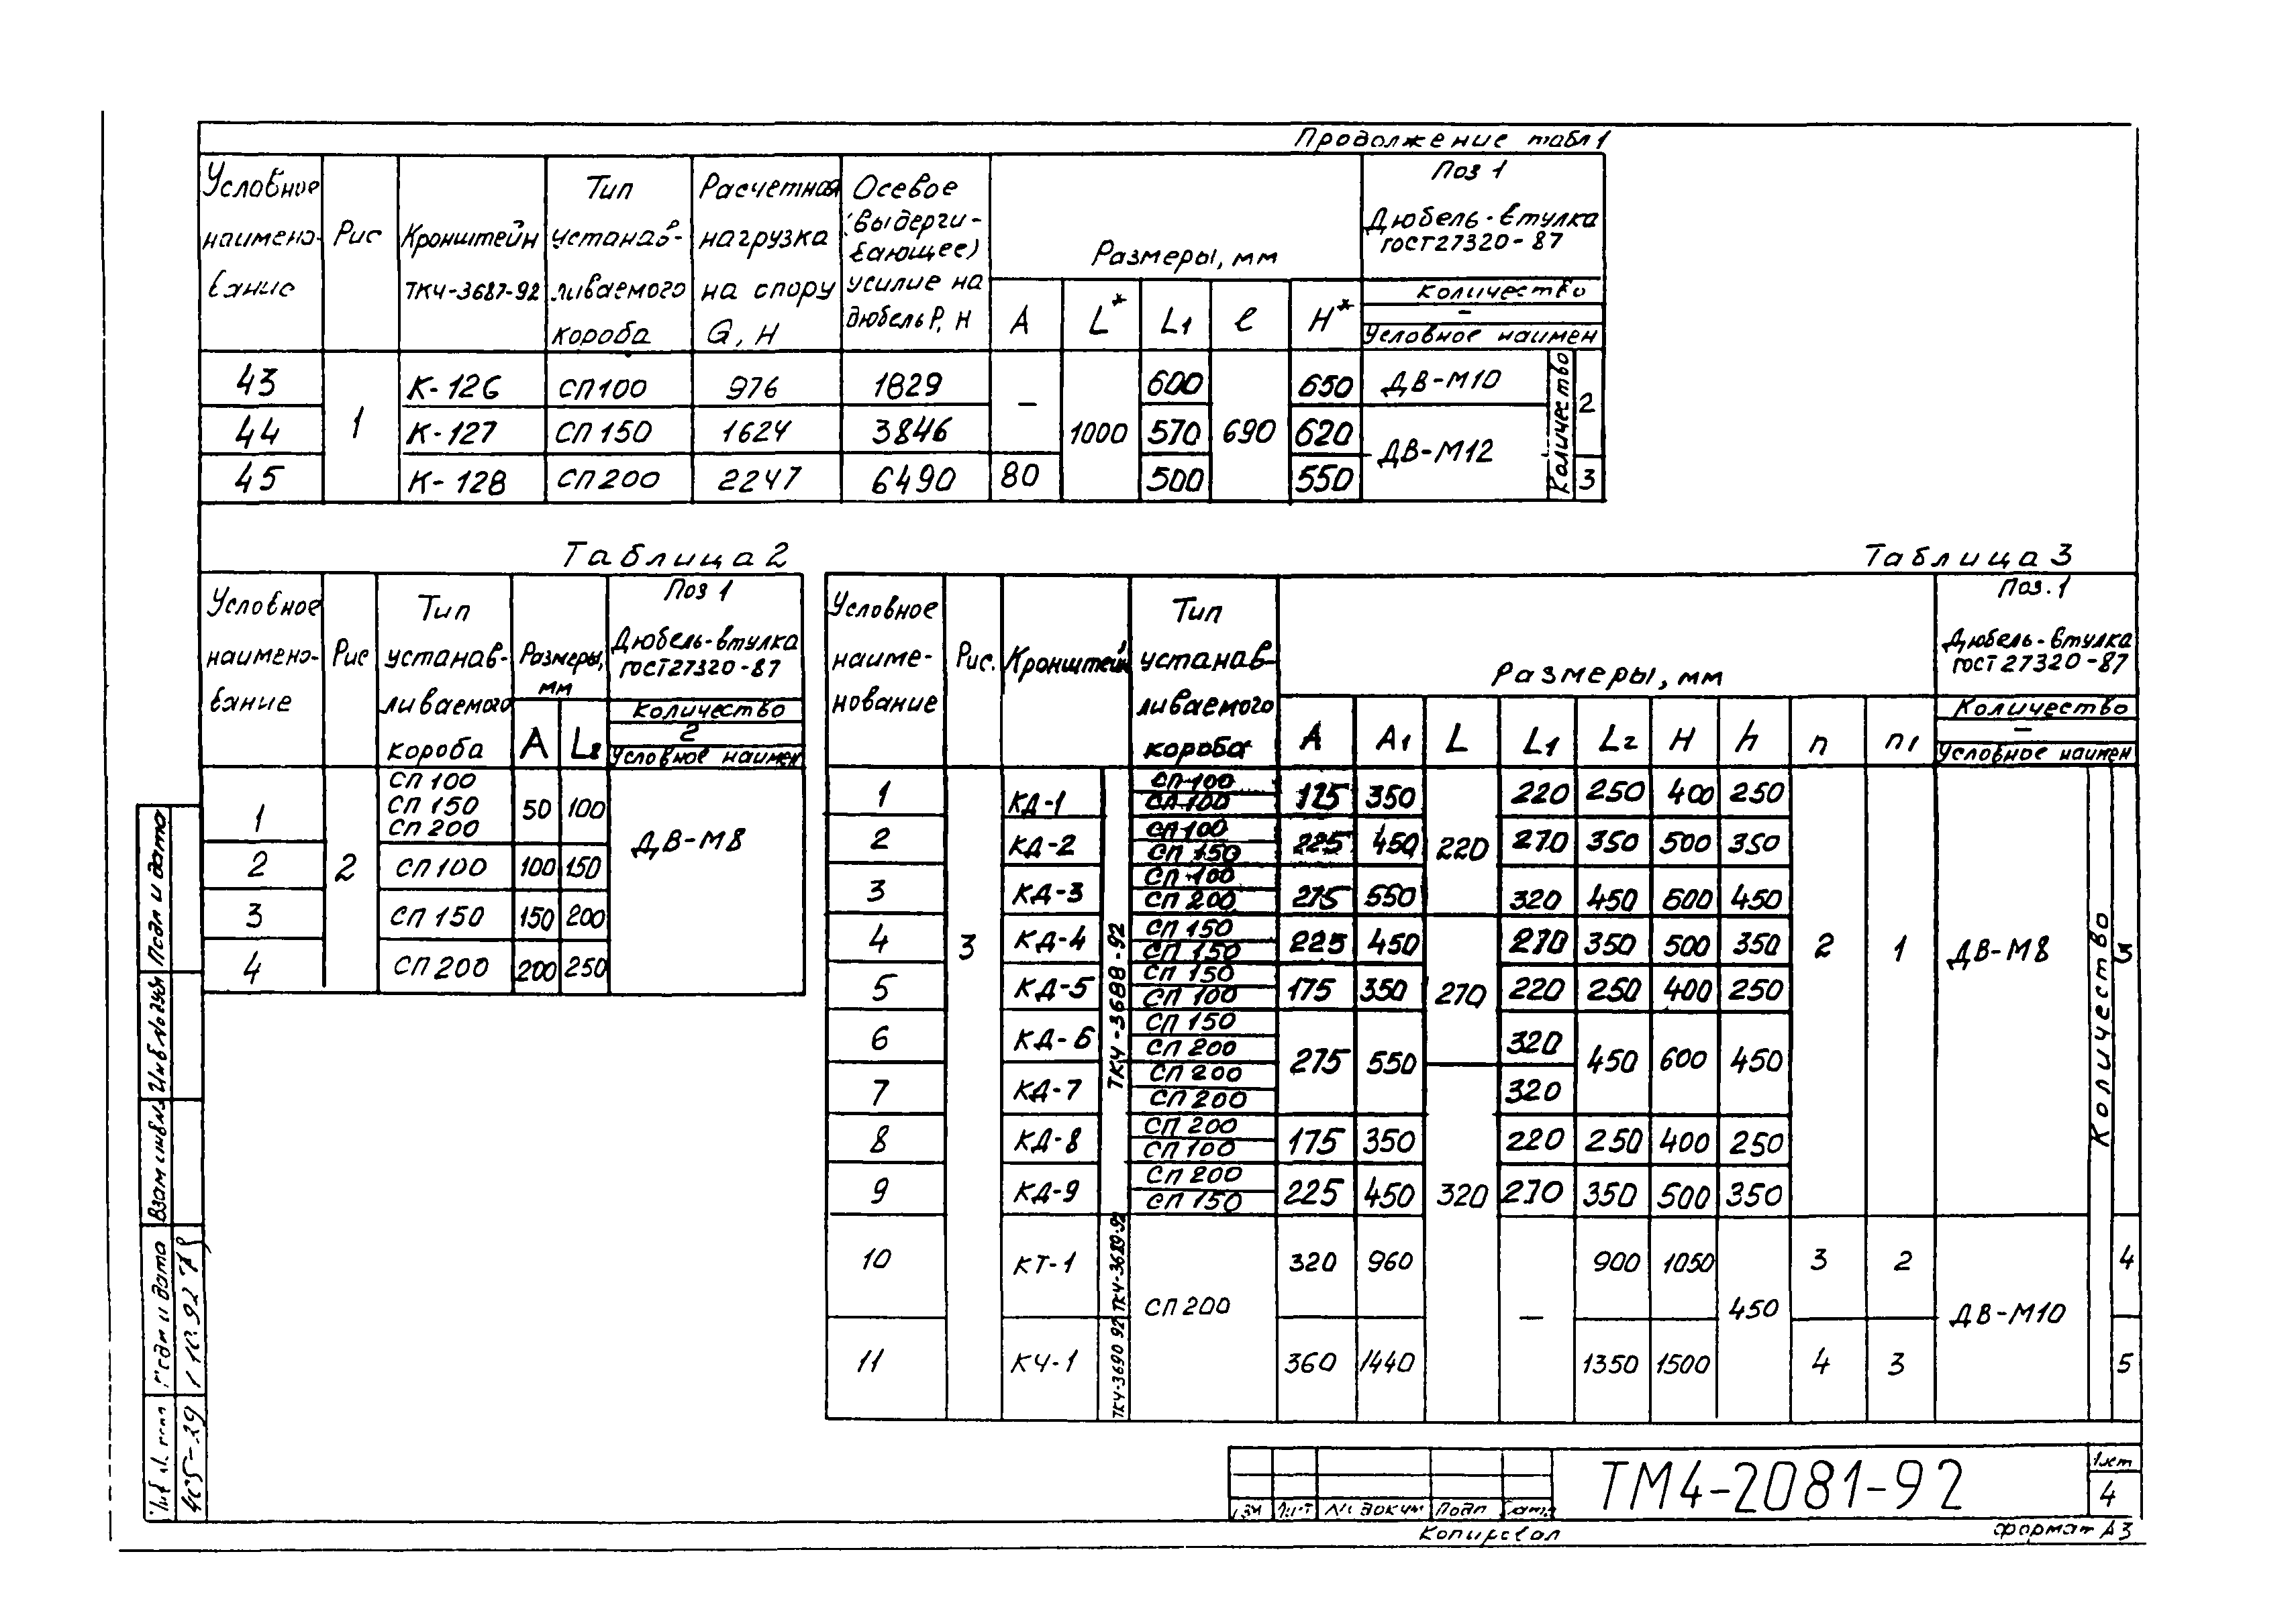 Продолжение табл 1
Условное наимено- вание
Рис
Кронштейн ТКЧ-3687-92
Тип устанав- ливаемого короба
Расчетная нагрузка на опору G, Н
Осевое (выдерги- вающее) усилие на дюбель Р, Н
Размеры, мм
A L* L1 ℓ H*
Поз 1
Дюбель-втулка
ГОСТ 27320-87
Количество
–
Условное наимен
43 1 К-126 СП100 976 1829 – 1000 600 690 650 ДВ-М10 Количество 2
44 К-127 СП 150 1624 3846 570 620 ДВ-М12
45 К-128 СП 200 2247 6490 80 500 550 3
Таблица 2
Условное наимено- вание
Рис
Тип устанав- ливаемого короба
Размеры, мм
A L2
Поз 1
Дюбель-втулка
ГОСТ 27320-87
Количество
2
Условное наимен
1 2 СП 100 СП 150 СП 200 50 100 ДВ-М8
2 СП 100 100 150
3 СП 150 150 200
4 СП 200 200 250
Таблица 3
Условное наиме- нование
Рис.
Кронштейн
Тип устанав- ливаемого короба
Размеры, мм
A A1 L L1 L2 H h n n1
Поз. 1
Дюбель-втулка
ГОСТ 27320-87
Количество
–
Условное наимен
1 3 КД-1 ТКЧ-3688-92 СП 100 СП 100 175 350 220 220 250 400 250 2 1 ДВ-М8 Количество 3
2 КД-2 СП 100 СП 150 225 450 270 350 500 350
3 КД-3 СП 100 СП 200 275 550 320 450 600 450
4 КД-4 СП 150 СП 150 225 450 270 270 350 500 350
5 КД-5 СП 150 СП 100 175 350 220 250 400 250
6 КД-6 СП 150 СП 200 275 550 320 450 600 450
7 КД-7 СП 200 СП 200 320 320
8 КД-8 СП 200 СП 100 175 350 220 250 400 250
9 КД-9 СП 200 СП 150 225 450 270 350 500 350
10 КТ-1 ТКЧ-3689-92 СП 200 320 960 – 900 1050 450 3 2 ДВ-М10 4
11 КЧ-1 ТКЧ-3690 92 360 1440 1350 1500 4 3 5
Подп и дата
Инв № дубл
Взам инв №
Подп и дата
Изм Лист № докум Подп Дата
ТМ4-2081-92
Лист
4
Копировал
формат А3